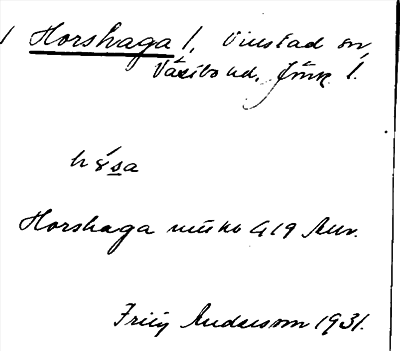 1 Horshaga l, Vinstad sn,
Västbo hd, Jönk l.
hósa
Horshaga mtl nr 419 Aur.
Fritz Andersson 1931.